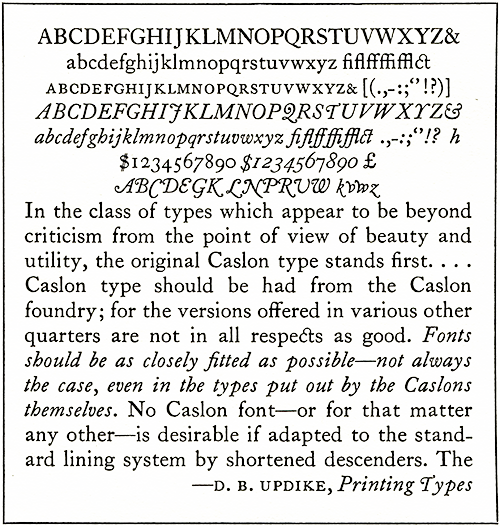 ABCDEFGHIJKLMNOPQRSTUVWXYZ&
abcdefghijklmnopqrstuvwxyz fiflffffifflct
ABCDEFGHIJKLMNOPQRSTUVWXYZ& [(.,-:;‘’!?)]
ABCDEFGHIJKLMNOPQRSTUVWXYZ&
abcdefghijklmnopqrstuvwxyz fiflffffifflct .,-:;‘’!? h
$1234567890 $1234567890 £
ABCDEGKLNPRUW kvwz
In the class of types which appear to be beyond
criticism from the point of view of beauty and
utility, the original Caslon type stands first. . . .
Caslon type should be had from the Caslon
foundry; for the versions offered in various other
quarters are not in all respects as good. Fonts
should be as closely fitted as possible—not always
the case, even in the types put out by the Caslons
themselves. No Caslon font—or for that matter
any other—is desirable if adapted to the stand-
ard lining system by shortened descenders. The
—D. B. UPDIKE, Printing Types